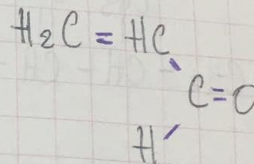 H₂C = HC
C=O
H